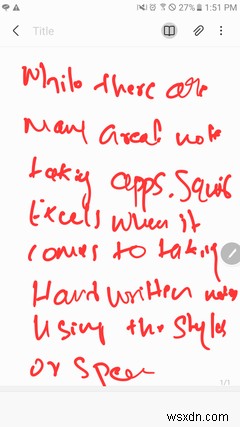 27% 1:51 PM
Title
While there are
many great note
taking apps. Squid
Excels when it
comes to taking
Hand written notes
Using the Stylus
or Spen
1/1
wsxdn.com